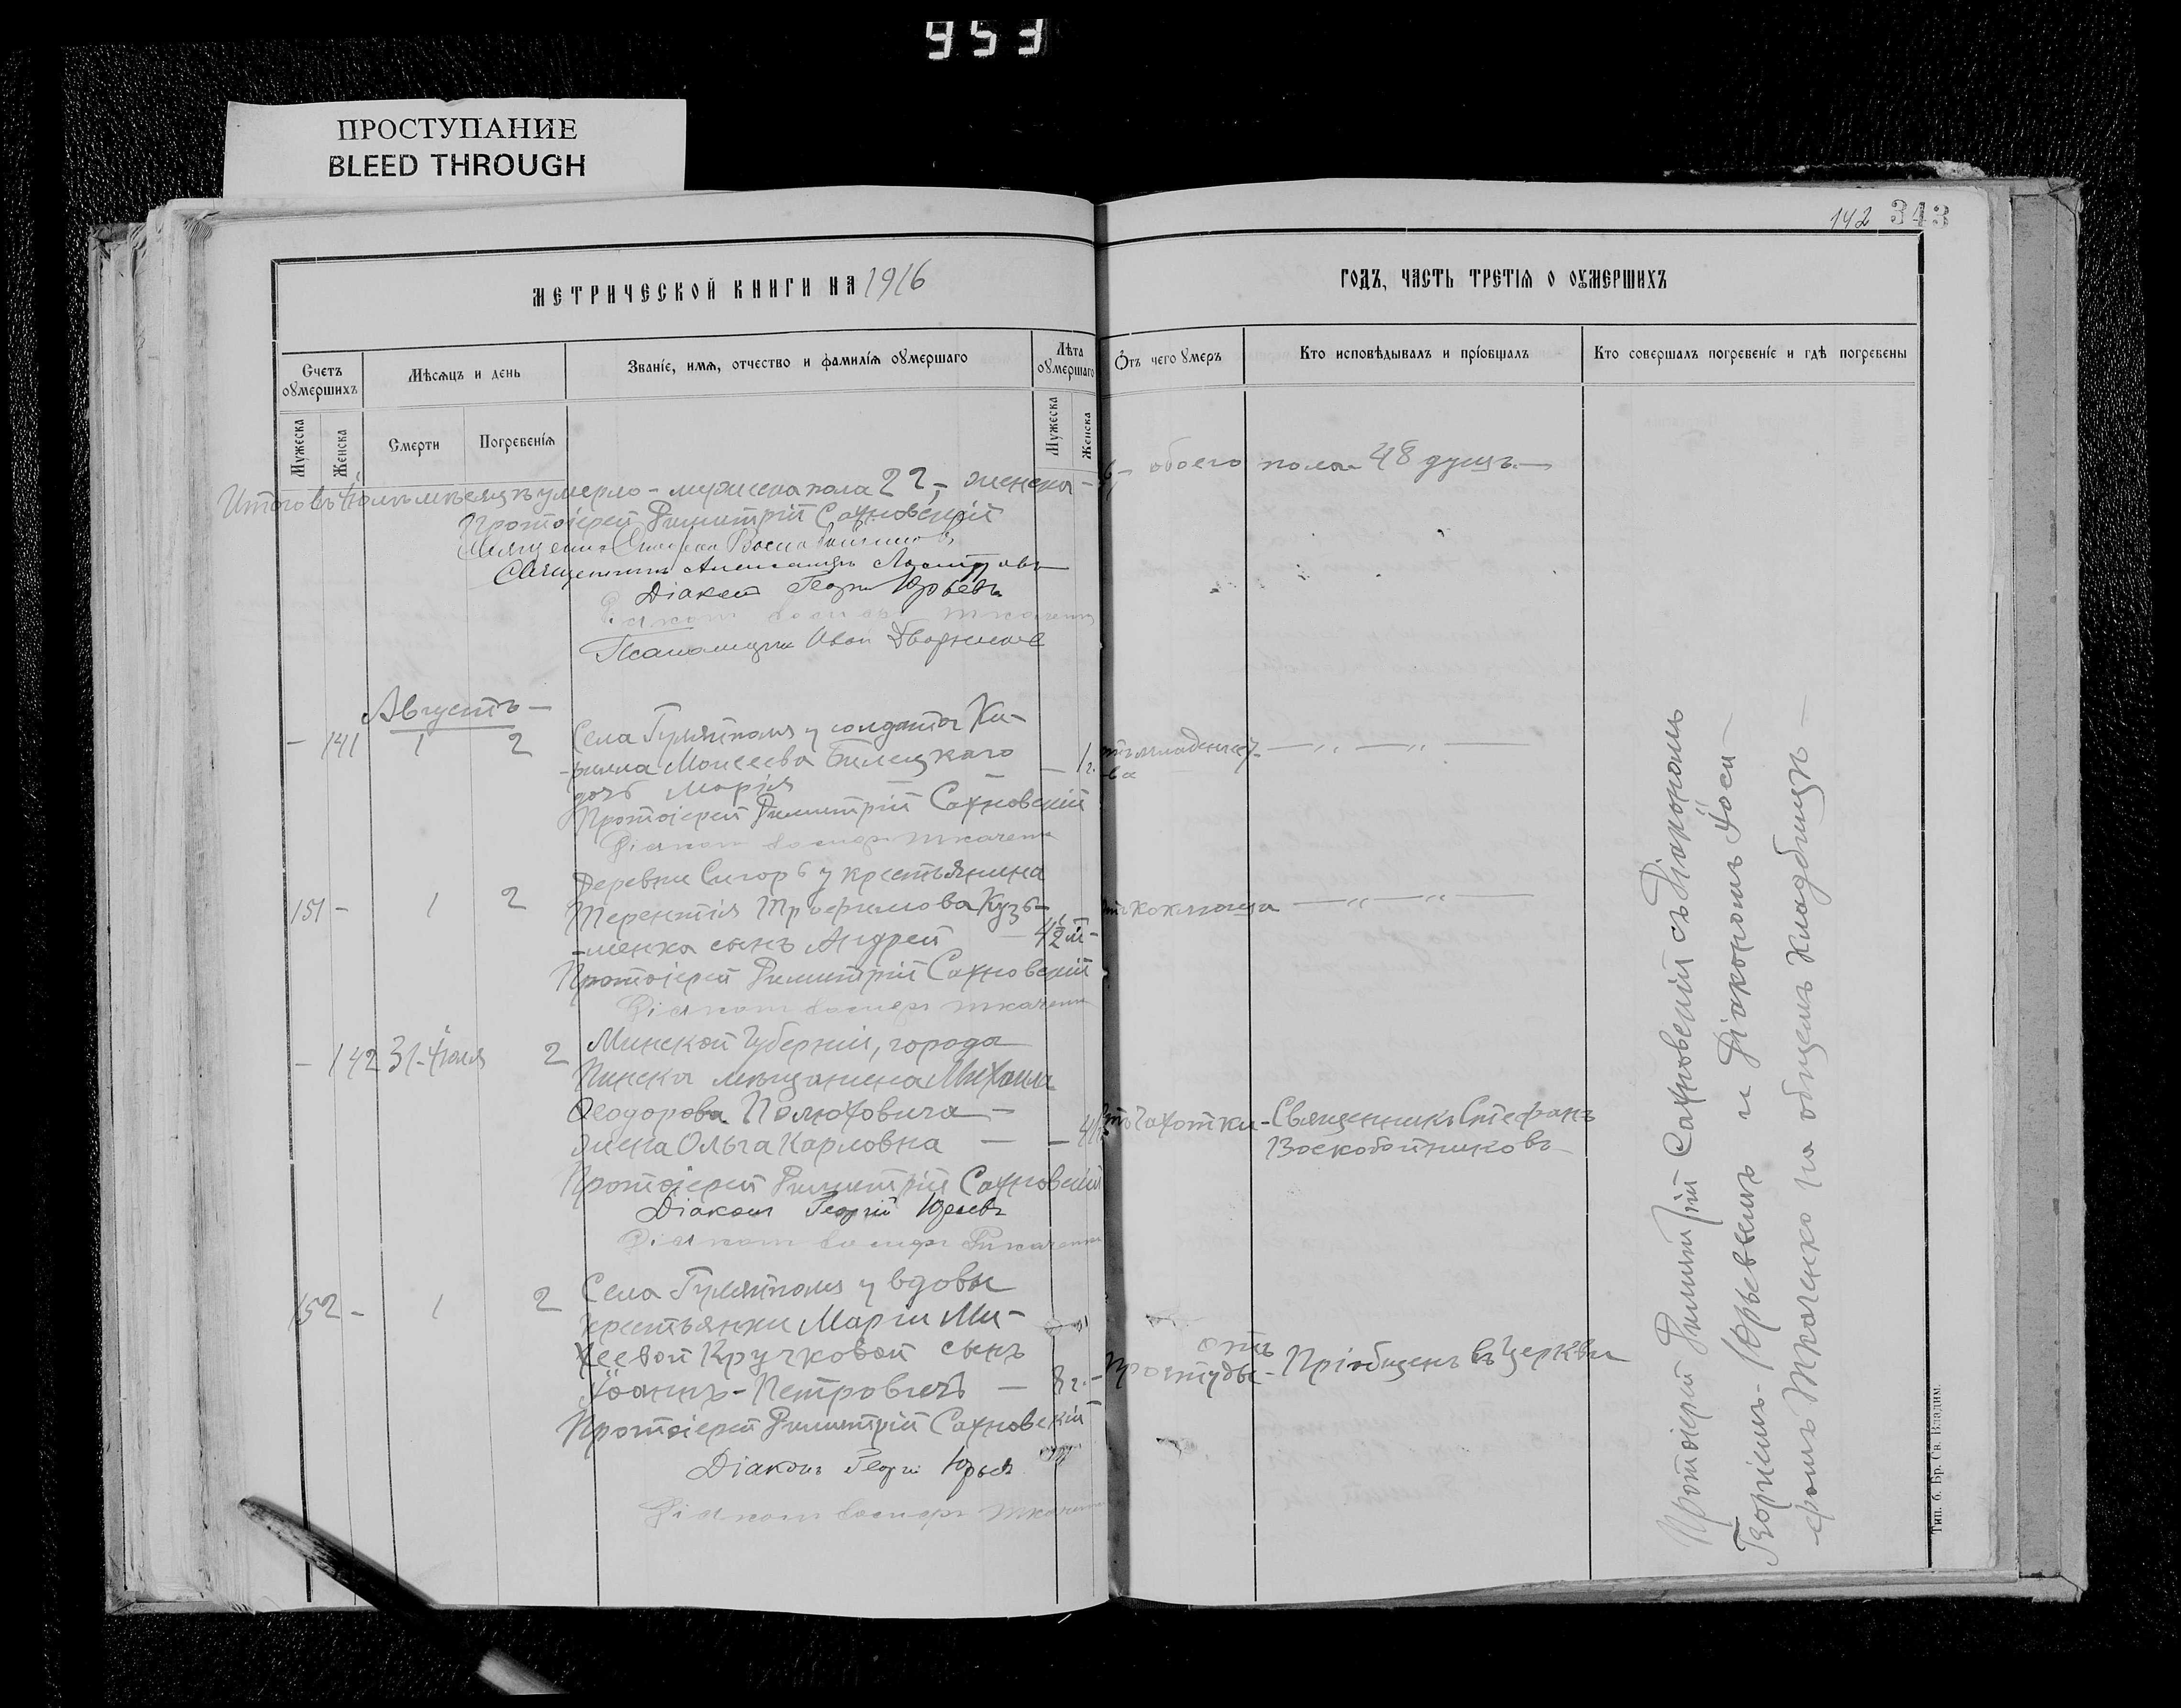 953
ПРОСТУПАНИЕ
BLEED THROUGH
142 343
МЕТРИЧЕСКОЙ КНИГИ НА 1916
ГОДЪ, ЧАСТЬ ТРЕТІѦ О ОУМЕРШИХЪ
Счетъ оумершихъ
Мѣсѧцъ и день
Званіе, имѧ, отчество и фамилїѧ оумершаго
Лѣта оумершаго
Отъ чего умеръ
Кто исповѣдывалъ и пріобщалъ
Кто совершалъ погребеніе и гдѣ погребены
Мужеска
Женска
Смерти
Погребенїѧ
Мужеска
Женска
Итого въ Іюлѣ мѣсяцѣ умерло - мужеска пола 22, - женска - 6, - обоего пола 48 душъ. -
Протоіерей Димитрій Сахновскій
Священникъ
Священникъ Александръ
Діаконъ Георгій Юрьевъ
Діаконъ Іосифъ Ткаченко
Псаломщикъ Иван Дворников
Августъ -
- 141 1 2 Села Гуляйполя у солдата Ки-
-рилла Моисеева Билецкаго - 1 г. отъ младенчес-
-тва
дочь Марія
Протоіерей Димитрій Сахновскій
Діаконъ Іосифъ Ткаченко
Деревни Сигорь у крестьянина
151 - 1 2 Терентія Трофимова Кузь- отъ коклюша
-менка сынъ Андрей - 4½ м -
Протоіерей Димитрій Сахновскій
Діаконъ Іосифъ Ткаченко
- 142 31 Іюля 2 Минской Губерніи, города
Пинска мѣщанина Михаила
Ѳеодорова Полюховича -
жена Ольга Карловна - отъ чахотки - Священникъ Стефанъ
Воскобойниковъ
Протоіерей Димитрій Сахновскій
Діаконъ Георгій Юрьевъ
Діаконъ Іосифъ Ткаченко
152 - 1 2 Села Гуляйполя у вдовы
крестьянки Маріи Ми-
хеевой Кручковой сынъ
Іоаннъ - Петровичъ - 8 г. - отъ простуды - Пріобщенъ въ Церкви
Протоіерей Димитрій Сахновскій
Діаконъ Георгій Юрьевъ
Діаконъ Іосифъ Ткаченко
Протоіерей Димитрій Сахновскій съ Діакономъ
Георгіемъ Юрьевымъ и Діакономъ Іоси-
фомъ Ткаченко на общемъ кладбищѣ -
Тип. б. Бр. Св. Владим.